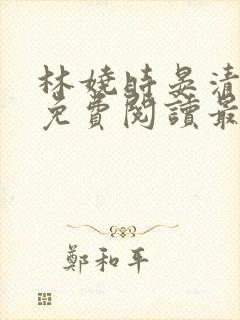 林嬈時晏清
免費閱讀最
鄭和平